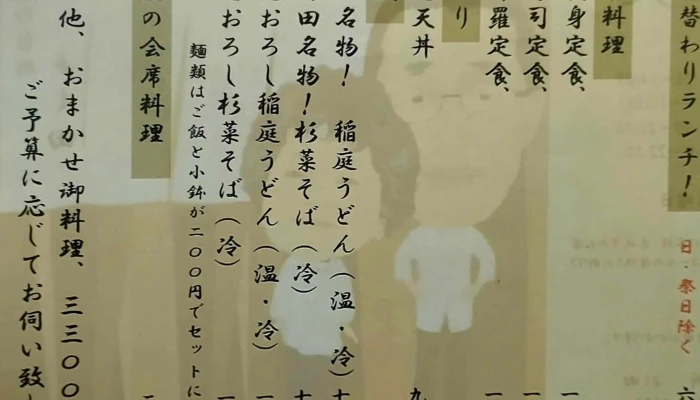 替わりランチ！
日・祭日除く 六
料理
身定食、 一
司定食、 一
羅定食、 一
り
天丼 九
名物！ 稲庭うどん（温・冷） 十
田名物！杉菜そば（冷） 十
おろし稲庭うどん（温・冷） 一
おろし杉菜そば（冷） 一
麺類はご飯と小鉢が二〇〇円でセットに
の会席料理 一
他、おまかせ御料理、三三〇〇
ご予算に応じてお伺い致し